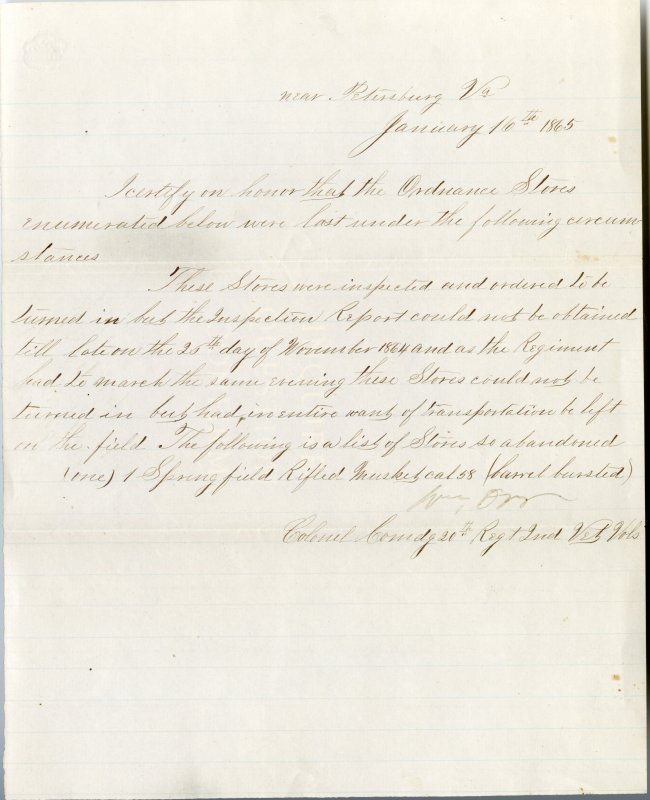 near Petersburg Va
January 16th 1865
I certify on honor that the Ordnance Stores
enumerated below were lost under the following circum-
stances
These Stores were inspected and ordered to be
turned in but the Inspection Report could not be obtained
till late on the 25th day of November 1864 and as the Regiment
had to march the same evening these Stores could not be
turned in but had, in entire want of transportation be left
on the field The following is a list of Stores so abandoned
(one) 1 Springfield Rifled Musket cal 58 (barrel bursted)
Wm Orr
Colonel Comdg 20th Regt Ind Vet Vols